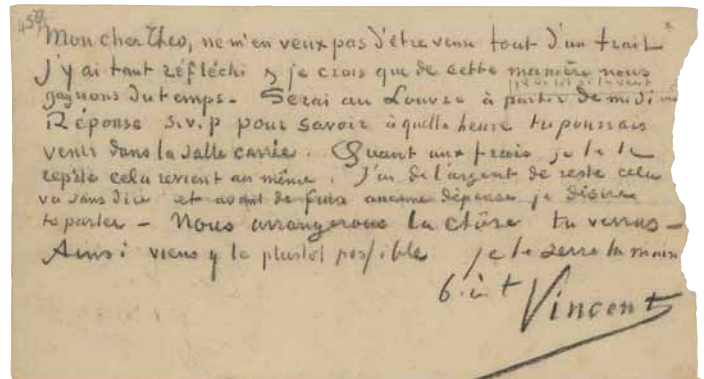 Mon cher Theo, ne m'en veux pas d'être venu tout d'un trait
J'y ai tant réfléchi & je crois que de cette manière nous
gagnons du temps – Serai au Louvre à partir de midi
Réponse s.v.p pour savoir à quelle heure tu pourrais
venir dans la salle carrée. Quant aux frais je te le
repète cela revient au même. J'ai de l'argent de reste cela
va sans dire et avant de faire aucune dépense je désire
te parler – Nous arrangerons la chôse tu verras –
Ainsi viens y le plustot possible je te serre la main
b. à t
Vincent